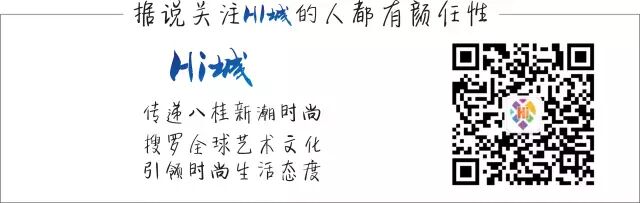 据说关注Hi城的人都有颜任性
Hi城
传递八桂新潮时尚
搜罗全球艺术文化
引领时尚生活态度
Hi